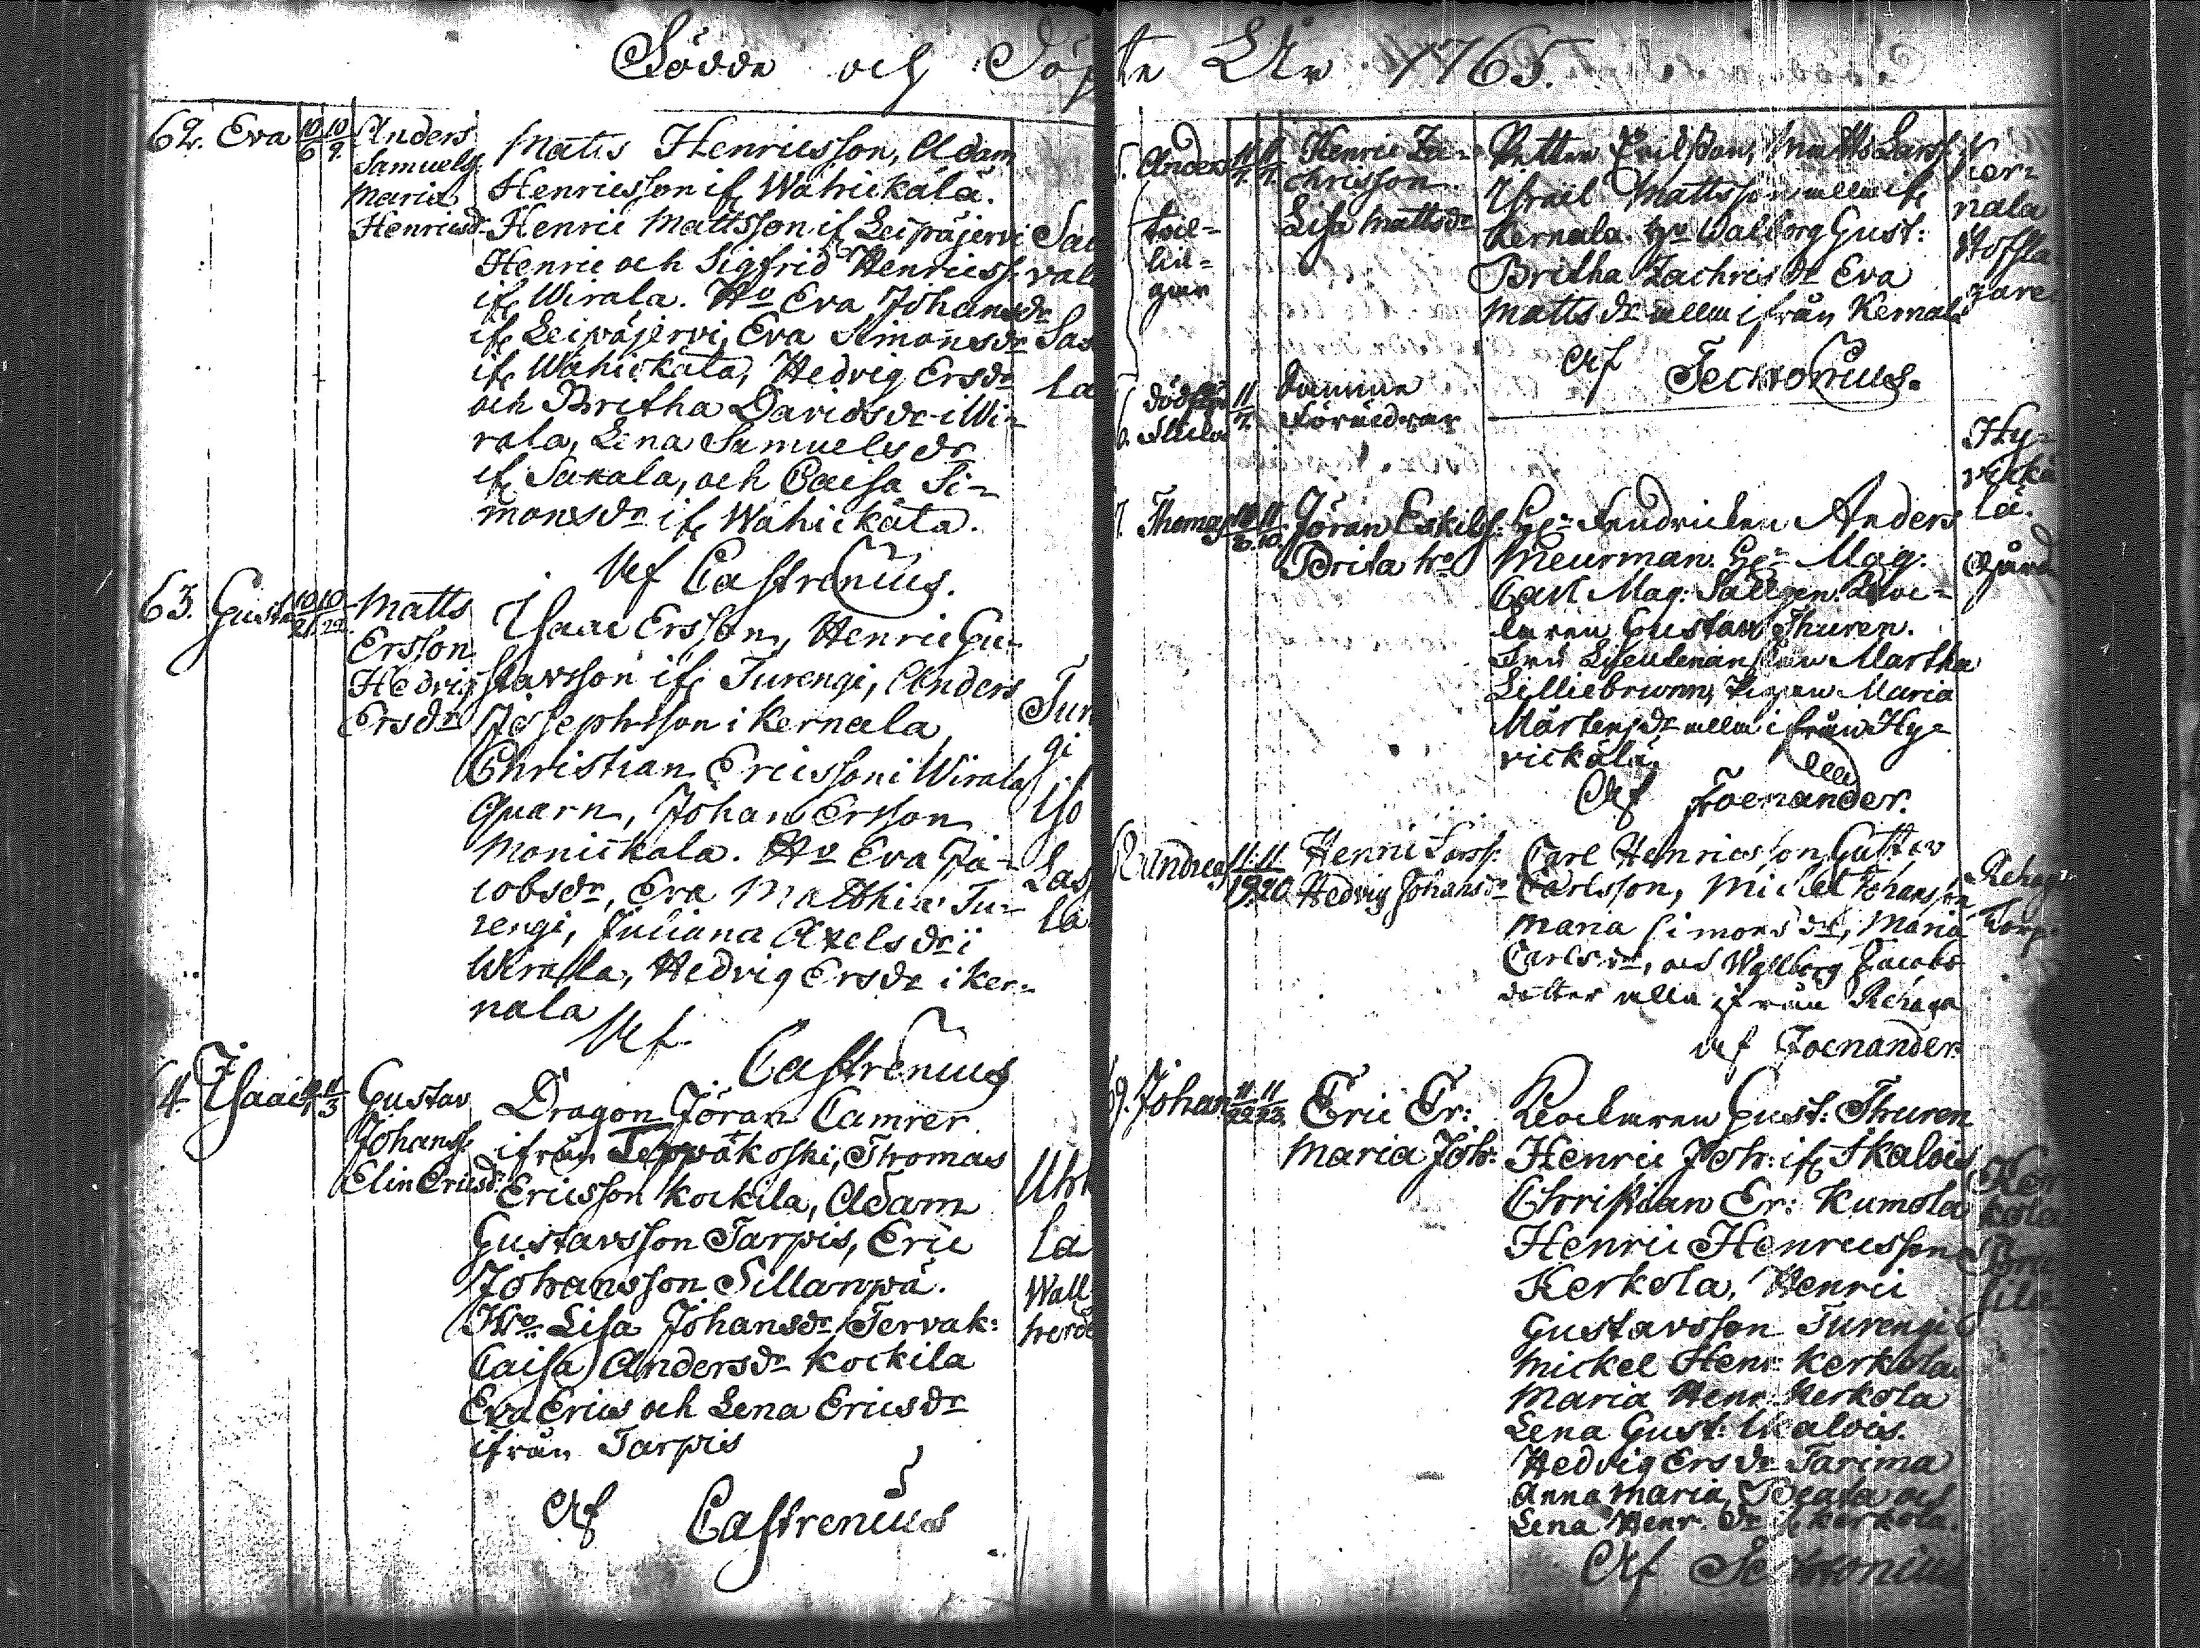 Födde och Döpte År 1765.
62. Eva 10/6 10/9 Anders
Samuels.
Maria
Henricsdr
Matts Henricsson, Adam
Henricsson if Wähickälä.
Henric Mattsson if Leipäjervi
Henric och Sigfrid Henricss.
if Wirala. Hº Eva Johansdr
if Leipäjervi, Eva Simonsdr
if Wähickälä, Hedvig Ersdr
och Britha Davidsdr i Wi=
rala, Lena Samuelsdr
if Sakala, och Caisa Si=
monsdr if Wähickälä.
Af Castrenius.
63. Gustav 10/21 10/22 Matts
Ersson
Hedvig
Ersdr
Isaac Ersson, Henric Gu=
stavsson if Turengi, Anders
Josephsson i Kernala
Christian Ericsson i Wirala
Quarn, Johan Ersson
Monickala. Hº Eva Ja=
cobsdr, Eva Matthiæ Tu=
rengi, Juliana Axelsdr i
Wirala, Hedvig Ersdr i Ker=
nala
Af Castrenius
Tur
gi
Iso
Las
la
64. Isaac 11/3 Gustav
Johanss.
Elin Ericsd.
Dragon Jöran Camrer
ifrån Terwäkoski, Thomas
Ericsson Kockila, Adam
Gustavsson Tarpis, Eric
Johansson Sillanpä.
Hº Lisa Johansdr Tervak:
Caisa Andersdr Kockila
Eva Erics och Lena Ericsdr
ifrån Tarpis
Af Castrenius
la
Wall
Anders 11/7 11/7 Henric Za=
chrisson
Lisa Mattsdr
tvil=
lin=
gar
Petter Ericsson, Matts Larss.
Israel Mattsson alla if
Kernala. Hº Walborg Gust:
Britha Zachrisdr Eva
Mattsdr alla ifrån Kernala
Af Tectonius.
Ker=
nala
dödfödd
flicka
11/7 Samma
Föräldrar
Thomas 11/10 Jöran Eskilss.
Brita
Hr Fendricken Anders
Meurman. Hr Mag.
Carl Mag: Sallgen. Kloc=
karen Gustav Thuren.
Fru Lieutenanskan Martha
Lilliebrunn, Pigan Maria
Mårtensdr alla ifrån Hy=
vickälä.
Af Foenander.
Hy=
vickä
lä.
Andreas 11/19 11/20 Henric Larss.
Hedvig Johansdr
Carl Henricsson, Gustav
Carlsson, Mickel Johansson
Maria Simonsdr, Maria
Carlsdr, och Wallborg Jacobs
dotter alla ifrån Rehaga
af Foenander
Torp.
Johan 11/22 11/23 Eric Er:
Maria Joh:
Klockaren Gust: Thuren
Henric Joh: if Ikalois
Christian Er: Kumola
Henric Henricsson
Kerkola, Henric
Gustavsson Turengi
Mickel Henr: Kerkola
Maria Henr: Kerkola
Lena Gust: Ikalois.
Hedvig Ersdr Tarima
Anna Maria, Beata och
Lena Henr. Dr if Kerkola.
Af Tectonius